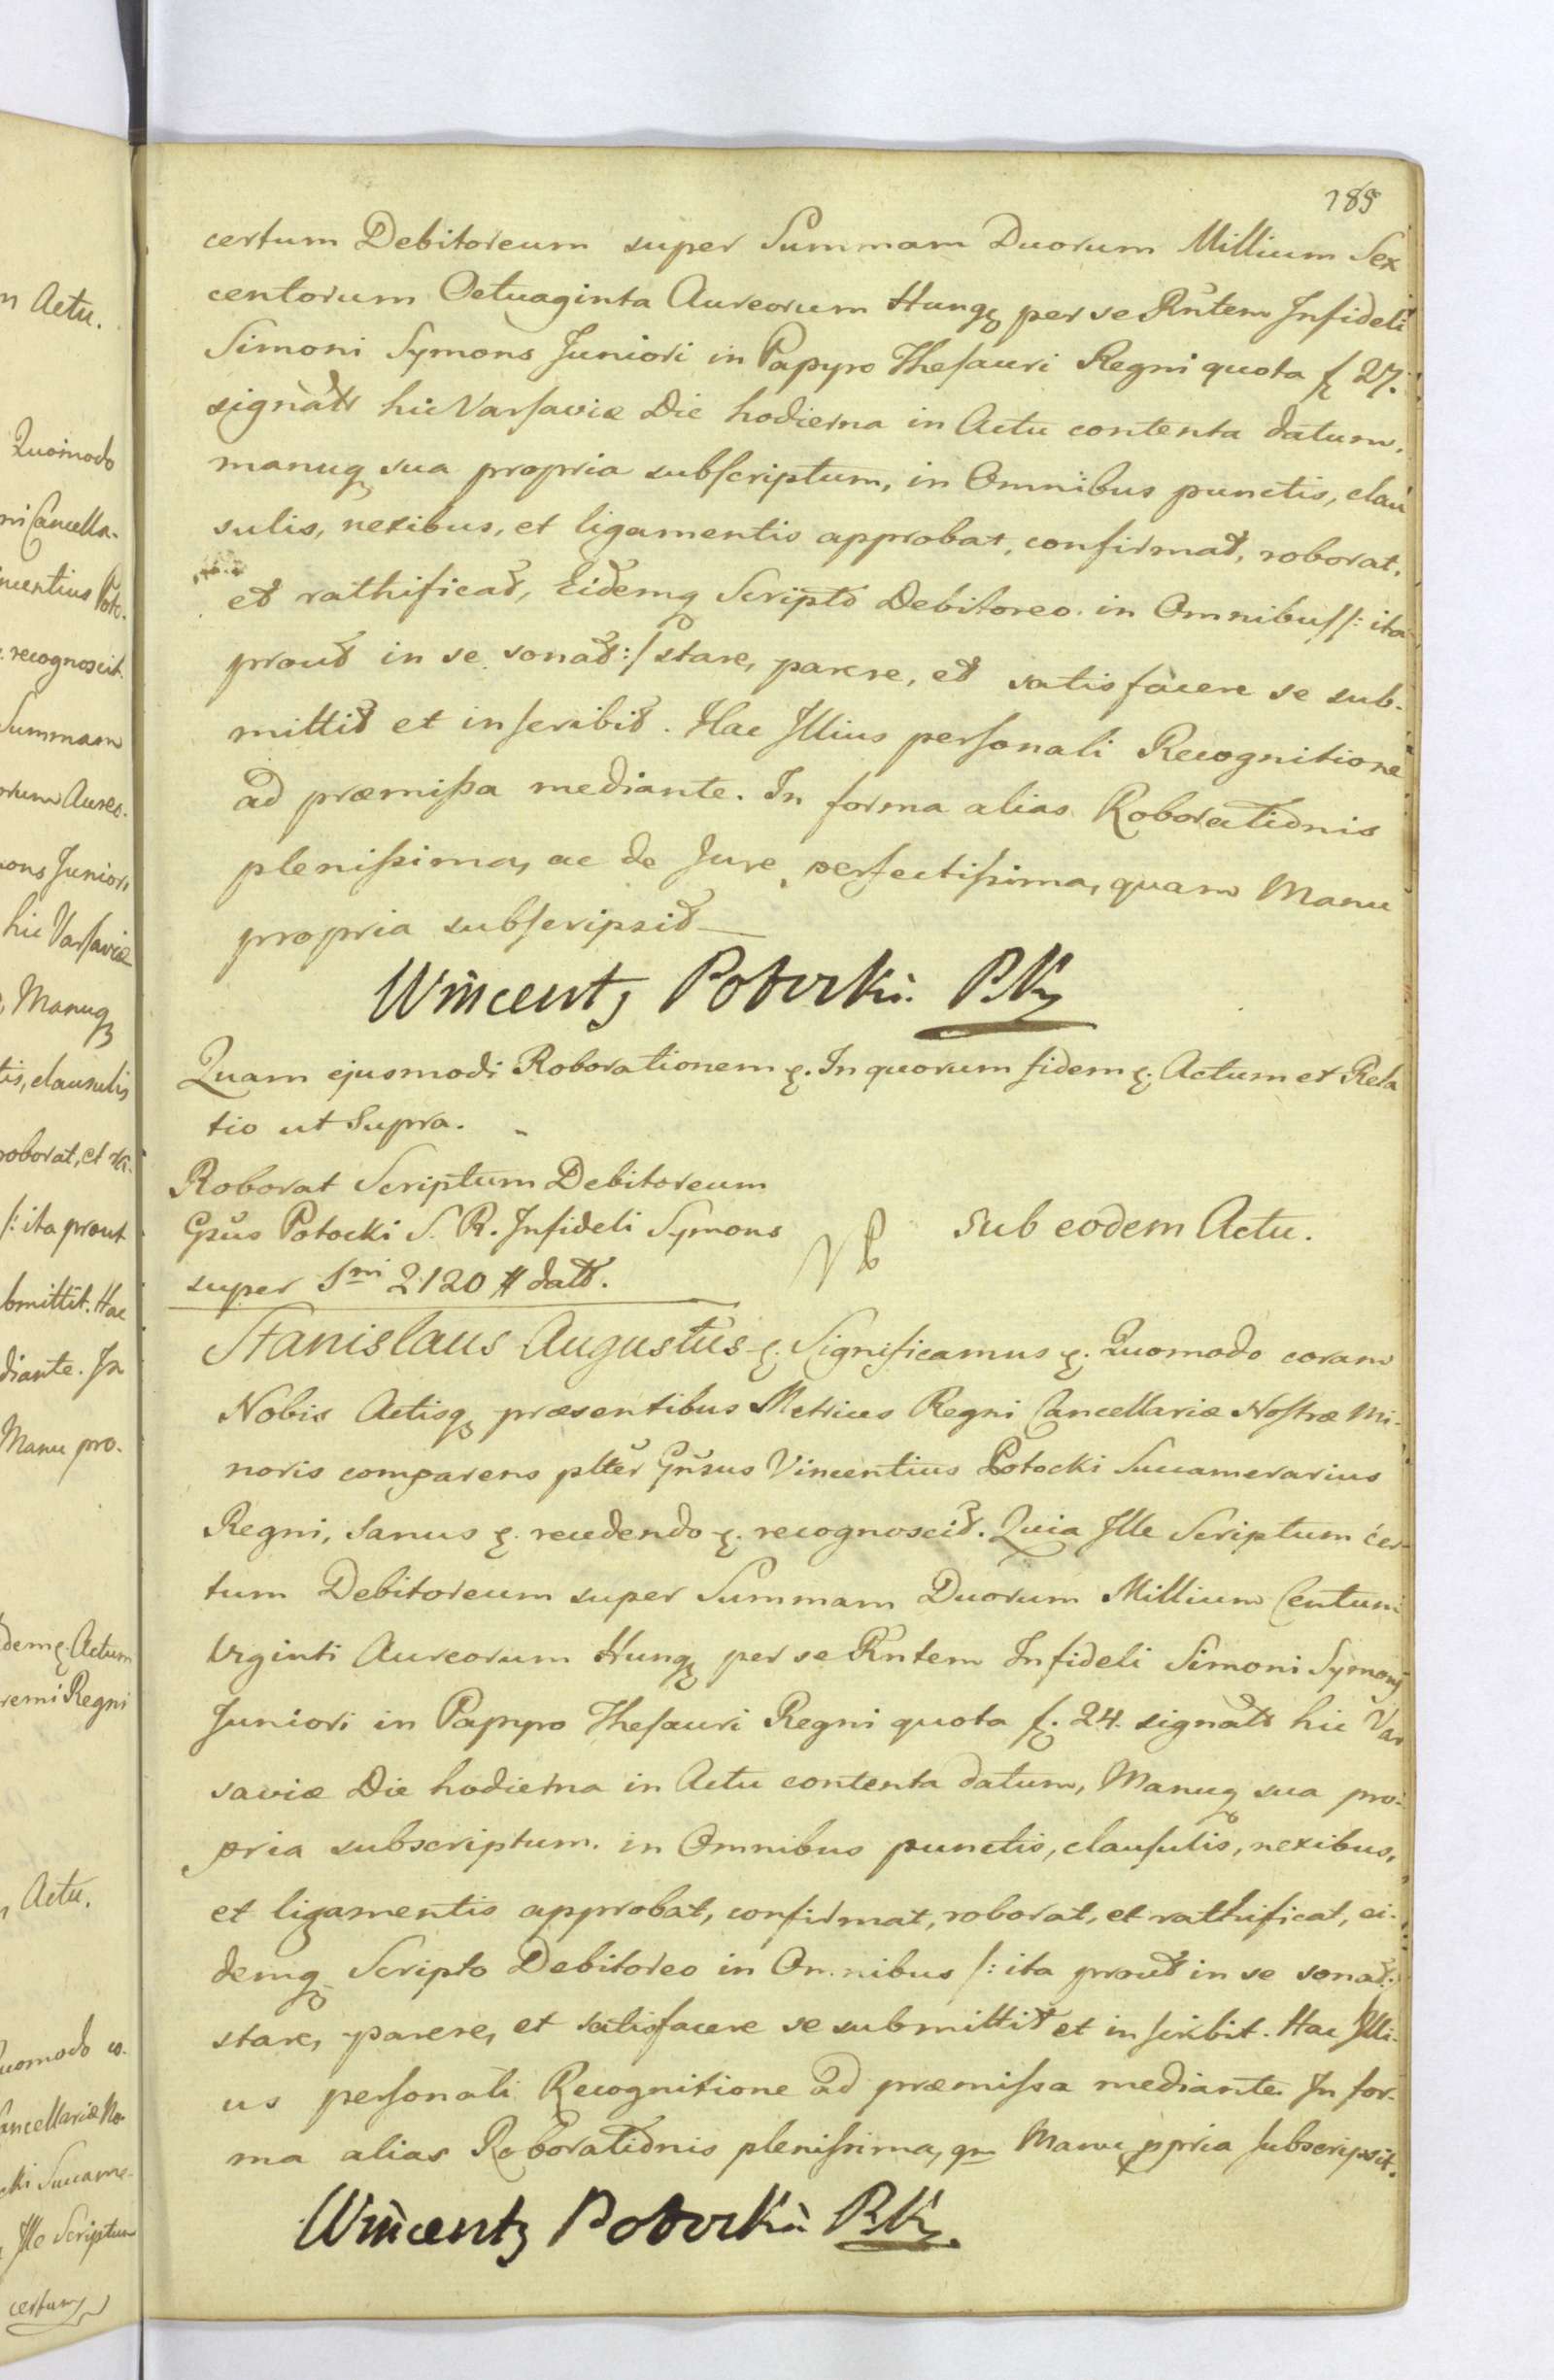 185
certum Debitoreum super Summam Duorum Millium Sex
centorum Octuaginta Aureorum Hungq per se Rñtem Infideli
Simoni Symons Juniori in Papyro Thesauri Regni quota f 27.
signatt hic Varsaviæ Die hodierna in Actu contenta datum,
manuq sua propria subscriptum, in Omnibus punctis, clau
sulis, nexibus, et ligamentis approbat, confirmat, roborat,
et rathificat, Eidemq Scripto Debitoreo in Omnibus /: ita
prout in se sonat :/ stare, parere, et satisfacere se sub-
mittit et inscribit. Hac Illius personali Recognitione
ad præmissa mediante. In forma alias Roborationis
plenissima, ac de Jure perfectissima, quam Manu
propria subscripsit
Wincenty Potocki PK
Quam ejusmodi Roborationem &. In quorum fidem &. Actum et Rela
tio ut Supra.
Roborat Scriptum Debitoreum
Gsus Potocki S. R. Infideli Symons
super Sm̃ 2120 # datt.
sub eodem Actu.
Stanislaus Augustus &. Significamus &. Quomodo coram
Nobis Actisq præsentibus Metrices Regni Cancellariæ Nostræ Mi-
noris comparens plter Gnsus Vincentius Potocki Succamerarius
Regni, Sanus &. recedendo &. recognoscit. Quia Ille Scriptum cer-
tum Debitoreum super Summam Duorum Millium Centum
Viginti Aureorum Hungq per se Rñtem Infideli Simoni Symons
Juniori in Papyro Thesauri Regni quota f. 24. signatt hic Var
saviæ Die hodierna in Actu contenta datum, Manuq sua pro-
pria subscriptum. in Omnibus punctis, clausulis, nexibus,
et ligamentis approbat, confirmat, roborat, et rathificat, ei-
demq Scripto Debitoreo in Omnibus /: ita prout in se sonat :/
stare, parere, et satisfacere se submittit et inscribit. Hac Illi-
us personali Recognitione ad præmissa mediante. In for-
ma alias Roborationis plenissima, qm Manu ppria subscripsit.
Wincenty Potocki PK.